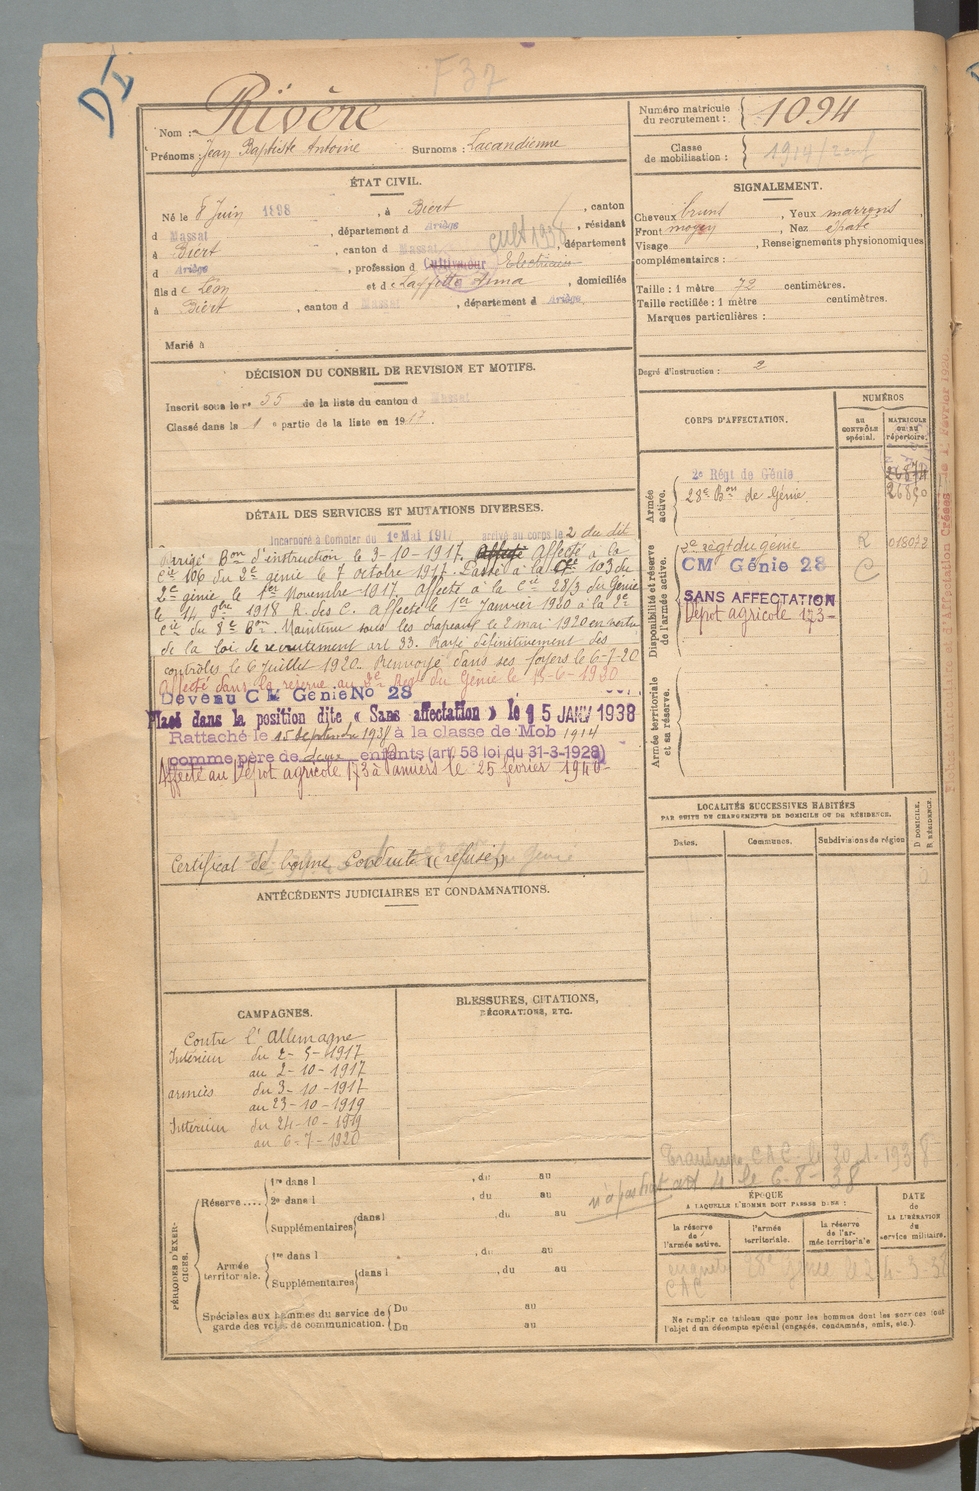 DI
F 37
Nom : Rivère
Prénoms : Jean Baptiste Antoine Surnoms : Lacandienne
Numéro matricule du recrutement : 1094
Classe de mobilisation : 1914
ÉTAT CIVIL.
Né le 8 Juin 1898, à Biert, canton
d Massat, département d Ariège, résidant
à Biert, canton d Massat, département
cult 1938
d Ariège, profession d Cultivateur Electricien
fils de Léon et de Laffitte Anna, domiciliés
à Biert, canton d Massat, département d Ariège
Marié à
SIGNALEMENT.
Cheveux bruns, Yeux marrons
Front moyen, Nez épaté
Visage , Renseignements physionomiques
complémentaires :
Taille : 1 mètre 72 centimètres.
Taille rectifiée : 1 mètre centimètres.
Marques particulières :
Degré d'instruction : 2
DÉCISION DU CONSEIL DE REVISION ET MOTIFS.
Inscrit sous le n° 55 de la liste du canton d Massat
Classé dans la 1 e partie de la liste en 1917.
CORPS D'AFFECTATION.
NUMÉROS
AU CONTRÔLE spécial.
MATRICULE OU AU répertoire.
Armée active.
2e Régt de Génie
28e Bon de Génie. 26850
Disponibilité et réserve de l'armée active.
2e règt du génie R 018078
CM Génie 28 C
SANS AFFECTATION
Dépot agricole 173-
Armée territoriale et sa réserve.
DÉTAIL DES SERVICES ET MUTATIONS DIVERSES.
Incorporé à Compter du 1er Mai 1917 arrivé au corps le 2 du dit
Dirigé Bon d'instruction le 3-10-1917. Affecté Affecté à la
Cie 106 du 2e génie le 7 octobre 1917. Passé à la Cie 103 du
2e génie le 1er Novembre 1917. Affecté à la Cie 28/3 du Génie
le 14 9bre 1918 R. des C. Affecté le 1er Janvier 1920 à la 2e
Cie du 8e Bon. Maintenu sous les drapeaux le 2 mai 1920 en vertu
de la loi de recrutement art 33. Rayé définitivement des
contrôles le 6 Juillet 1920. Renvoyé dans ses foyers le 6-7-20
Affecté dans la réserve au 2e Régt du Génie le 15-6-1930
Devenu CM Génie No 28
Placé dans la position dite « Sans affectation » le 15 JANV 1938
Rattaché le 15 Septembre 1938 à la classe de Mob 1914
comme père de deux enfants (art. 58 loi du 31-3-1928)
Affecté au Dépot agricole 173 à Pamiers le 25 février 1940-
Certificat de bonne Conduite (refusé)
ANTÉCÉDENTS JUDICIAIRES ET CONDAMNATIONS.
LOCALITÉS SUCCESSIVES HABITÉES
PAR SUITE DE CHANGEMENTS DE DOMICILE OU DE RÉSIDENCE.
Dates.
Communes.
Subdivisions de région
D DOMICILE, R RÉSIDENCE.
CAMPAGNES.
Contre l'Allemagne
Intérieur du 2-5-1917
au 2-10-1917
armées du 3-10-1917
au 23-10-1919
Intérieur du 24-10-1919
au 6-7-1920
BLESSURES, CITATIONS,
DÉCORATIONS, ETC.
CAC le 20-1-1938
4 le 6-8-38
PÉRIODES D'EXERCICES.
Réserve....
1re dans l , du au
2e dans l , du au
Supplémentaires dans l , du au
Armée territoriale.
1re dans l , du au
Supplémentaires dans l , du au
Spéciales aux hommes du service de garde des voies de communication.
Du au
Du au
ÉPOQUE
A LAQUELLE L'HOMME DOIT PASSER DANS :
la réserve de l'armée active.
l'armée territoriale.
la réserve de l'armée territoriale
DATE de LA LIBÉRATION du service militaire.
CAC 28e génie le 24-3-38
Ne remplir ce tableau que pour les hommes dont les services font
l'objet d'un décompte spécial (engagés, condamnés, omis, etc.).